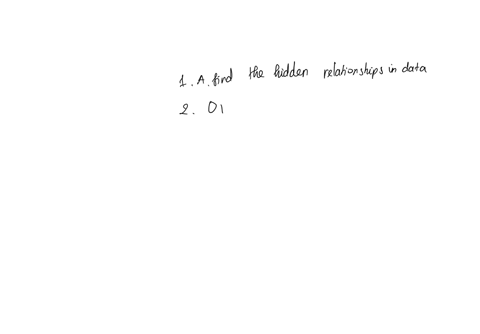 1. A. find the hidden relationships in data
2. O1